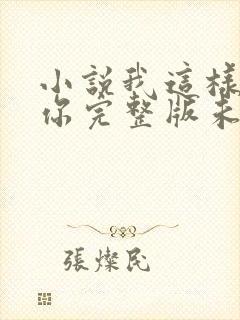 小說我這樣
你完整版未
張燦民